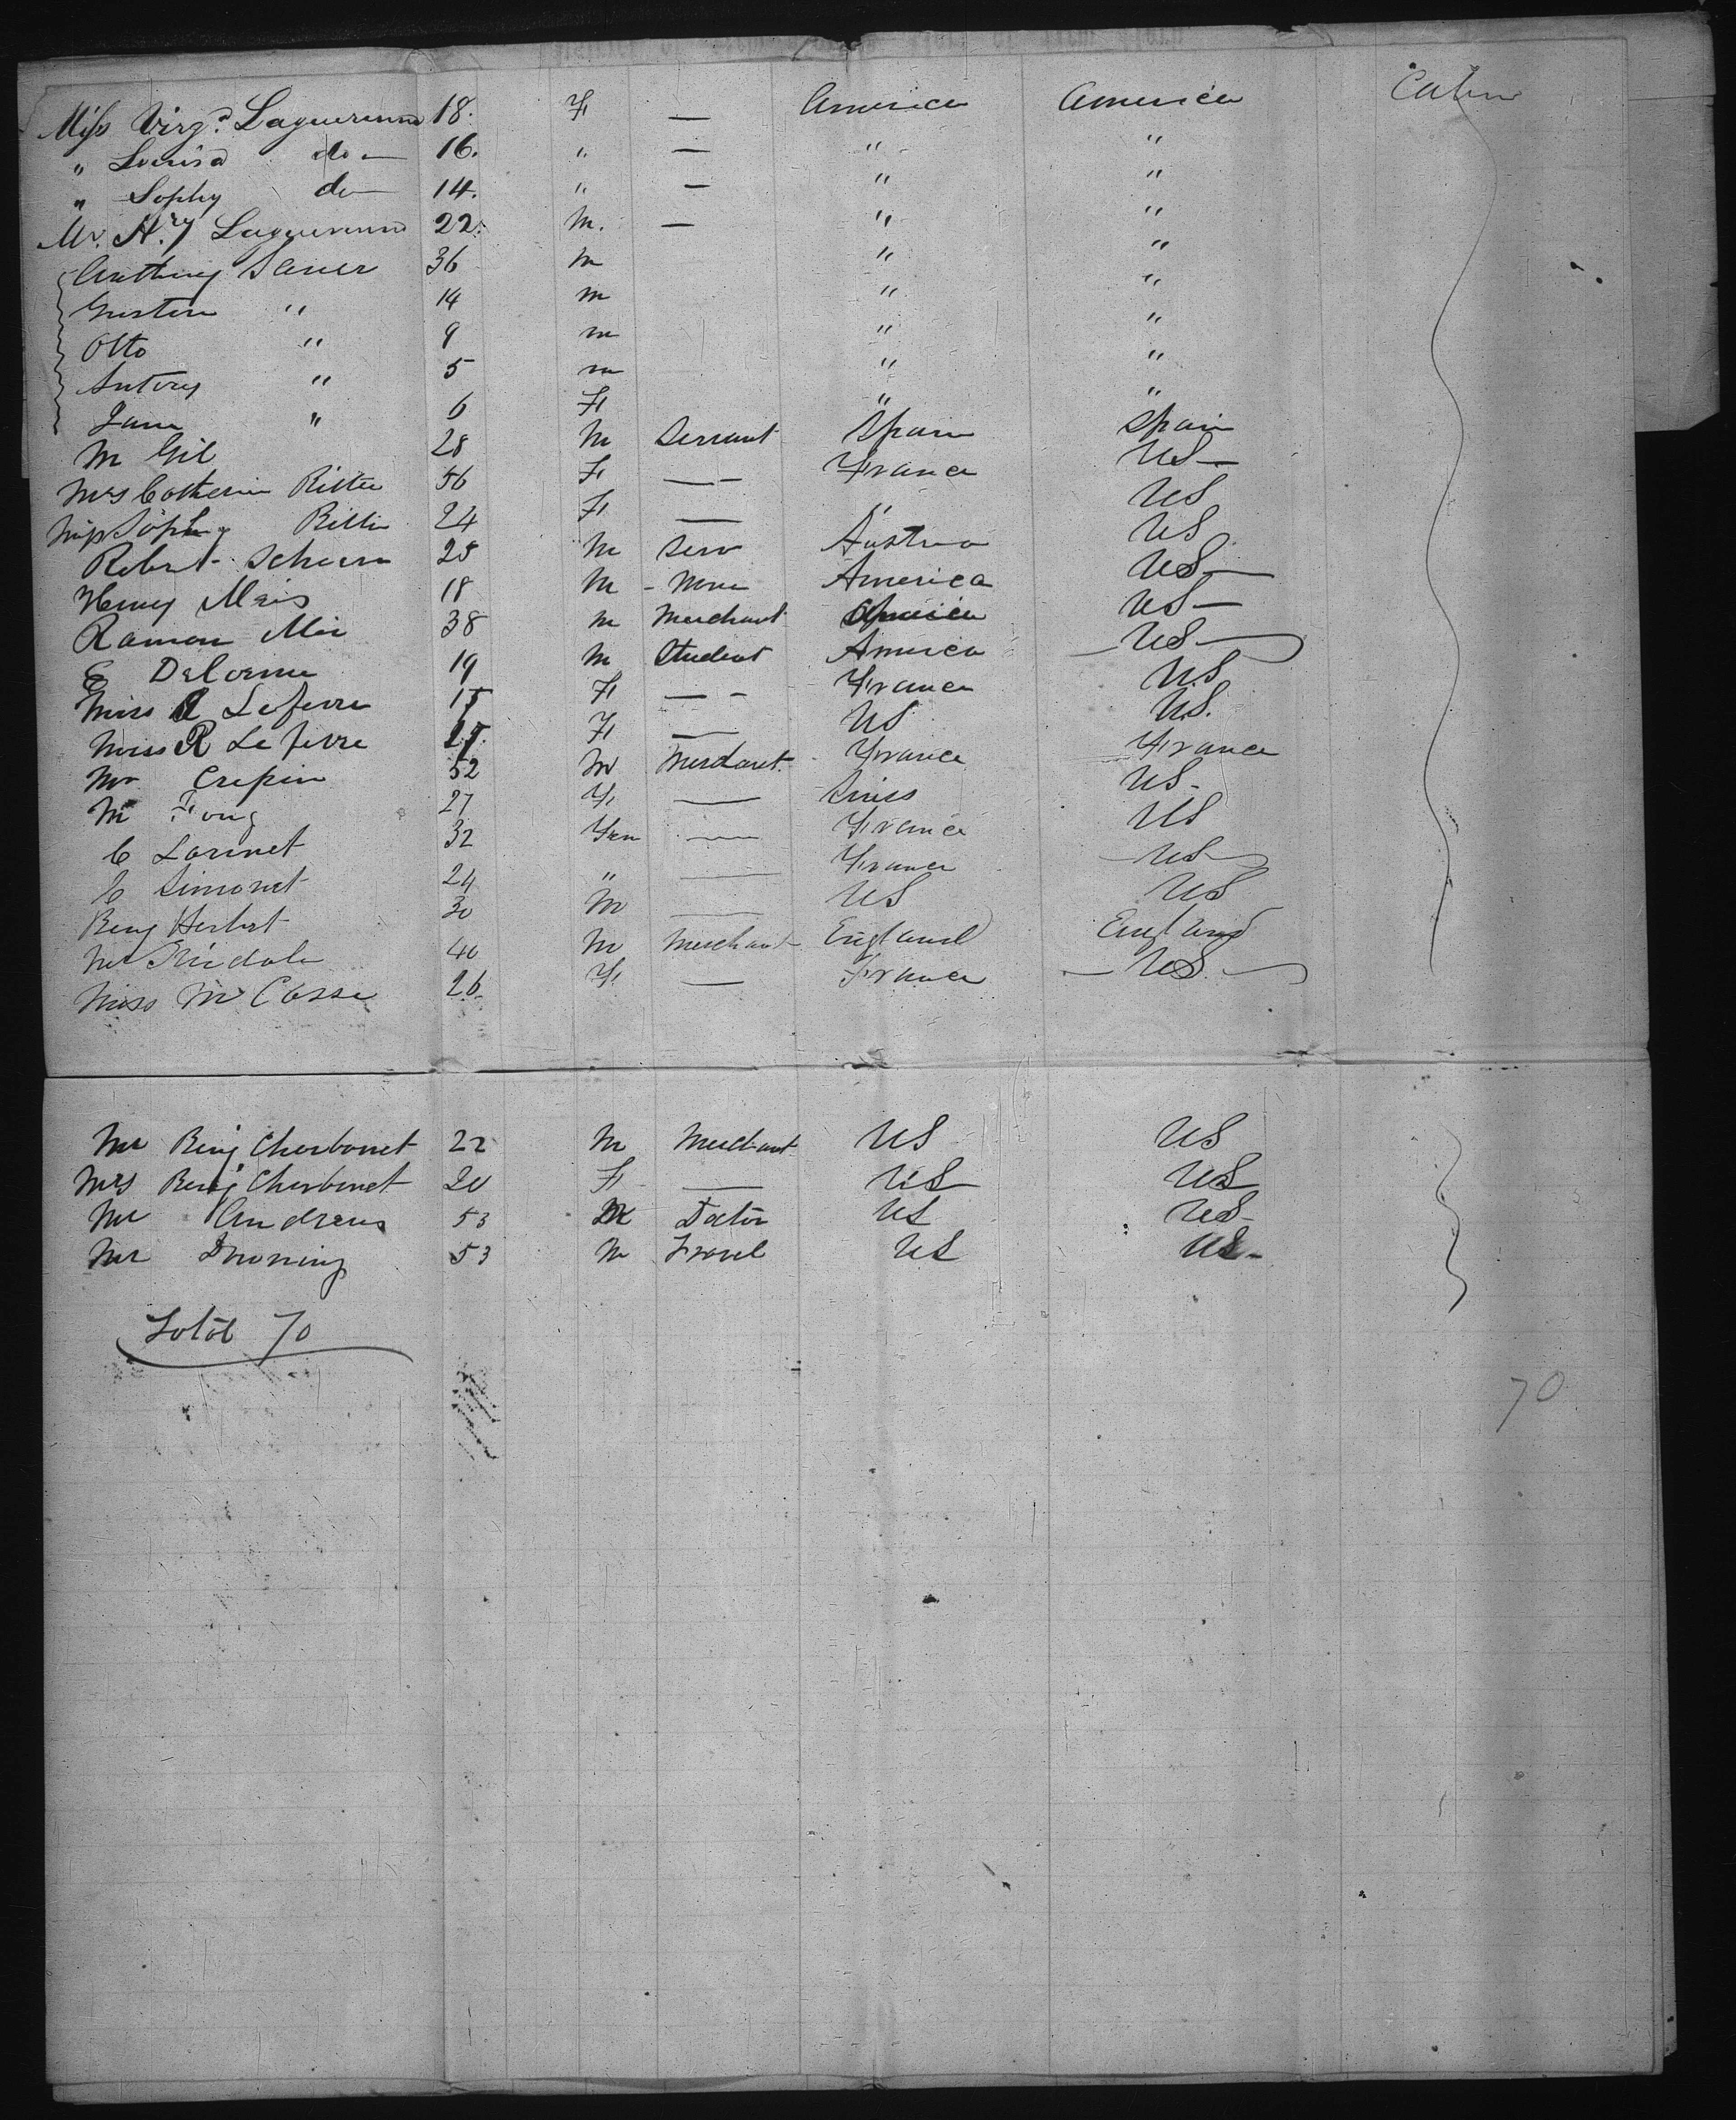 Miss Virg.a 18. F — America America Cabin
" Louisa do — 16. " — " "
" Sophy do — 14. " — " "
Mr. H.y 22. M. — " "
Anthony Sauer 36 M " "
" 14 M " "
Otto " 9 M " "
Antony " 5 M " "
Jane " 6 F " "
M Gil 28 M Servant Spain Spain
Mrs Catherin Ritter 56 F — France US
Miss Sophy Ritter 24 F — " US
Robert 25 M Serv Austria US
Henry 18 M None America US
Ramon 38 M Merchant US
E Delorme 19 M Student America US
Miss Lefevre 15 F — France US
Miss R Lefevre F — US US
Mr Crepin 52 M Merchant France France
M 27 F — Swiss US
C Lorinet 32 Fem — France US
C Simonet 24 " — France US
Benj Herbert 30 M — US US
Mr 40 M Merchant England England
Miss M Casse 26 F — France US
Mr Benj Charbonet 22 M Merchant US US
Mrs Benj Charbonet 20 F — US US
Mr Andrews 53 M Doctor US US
Mr 53 M US US
Total 70
70